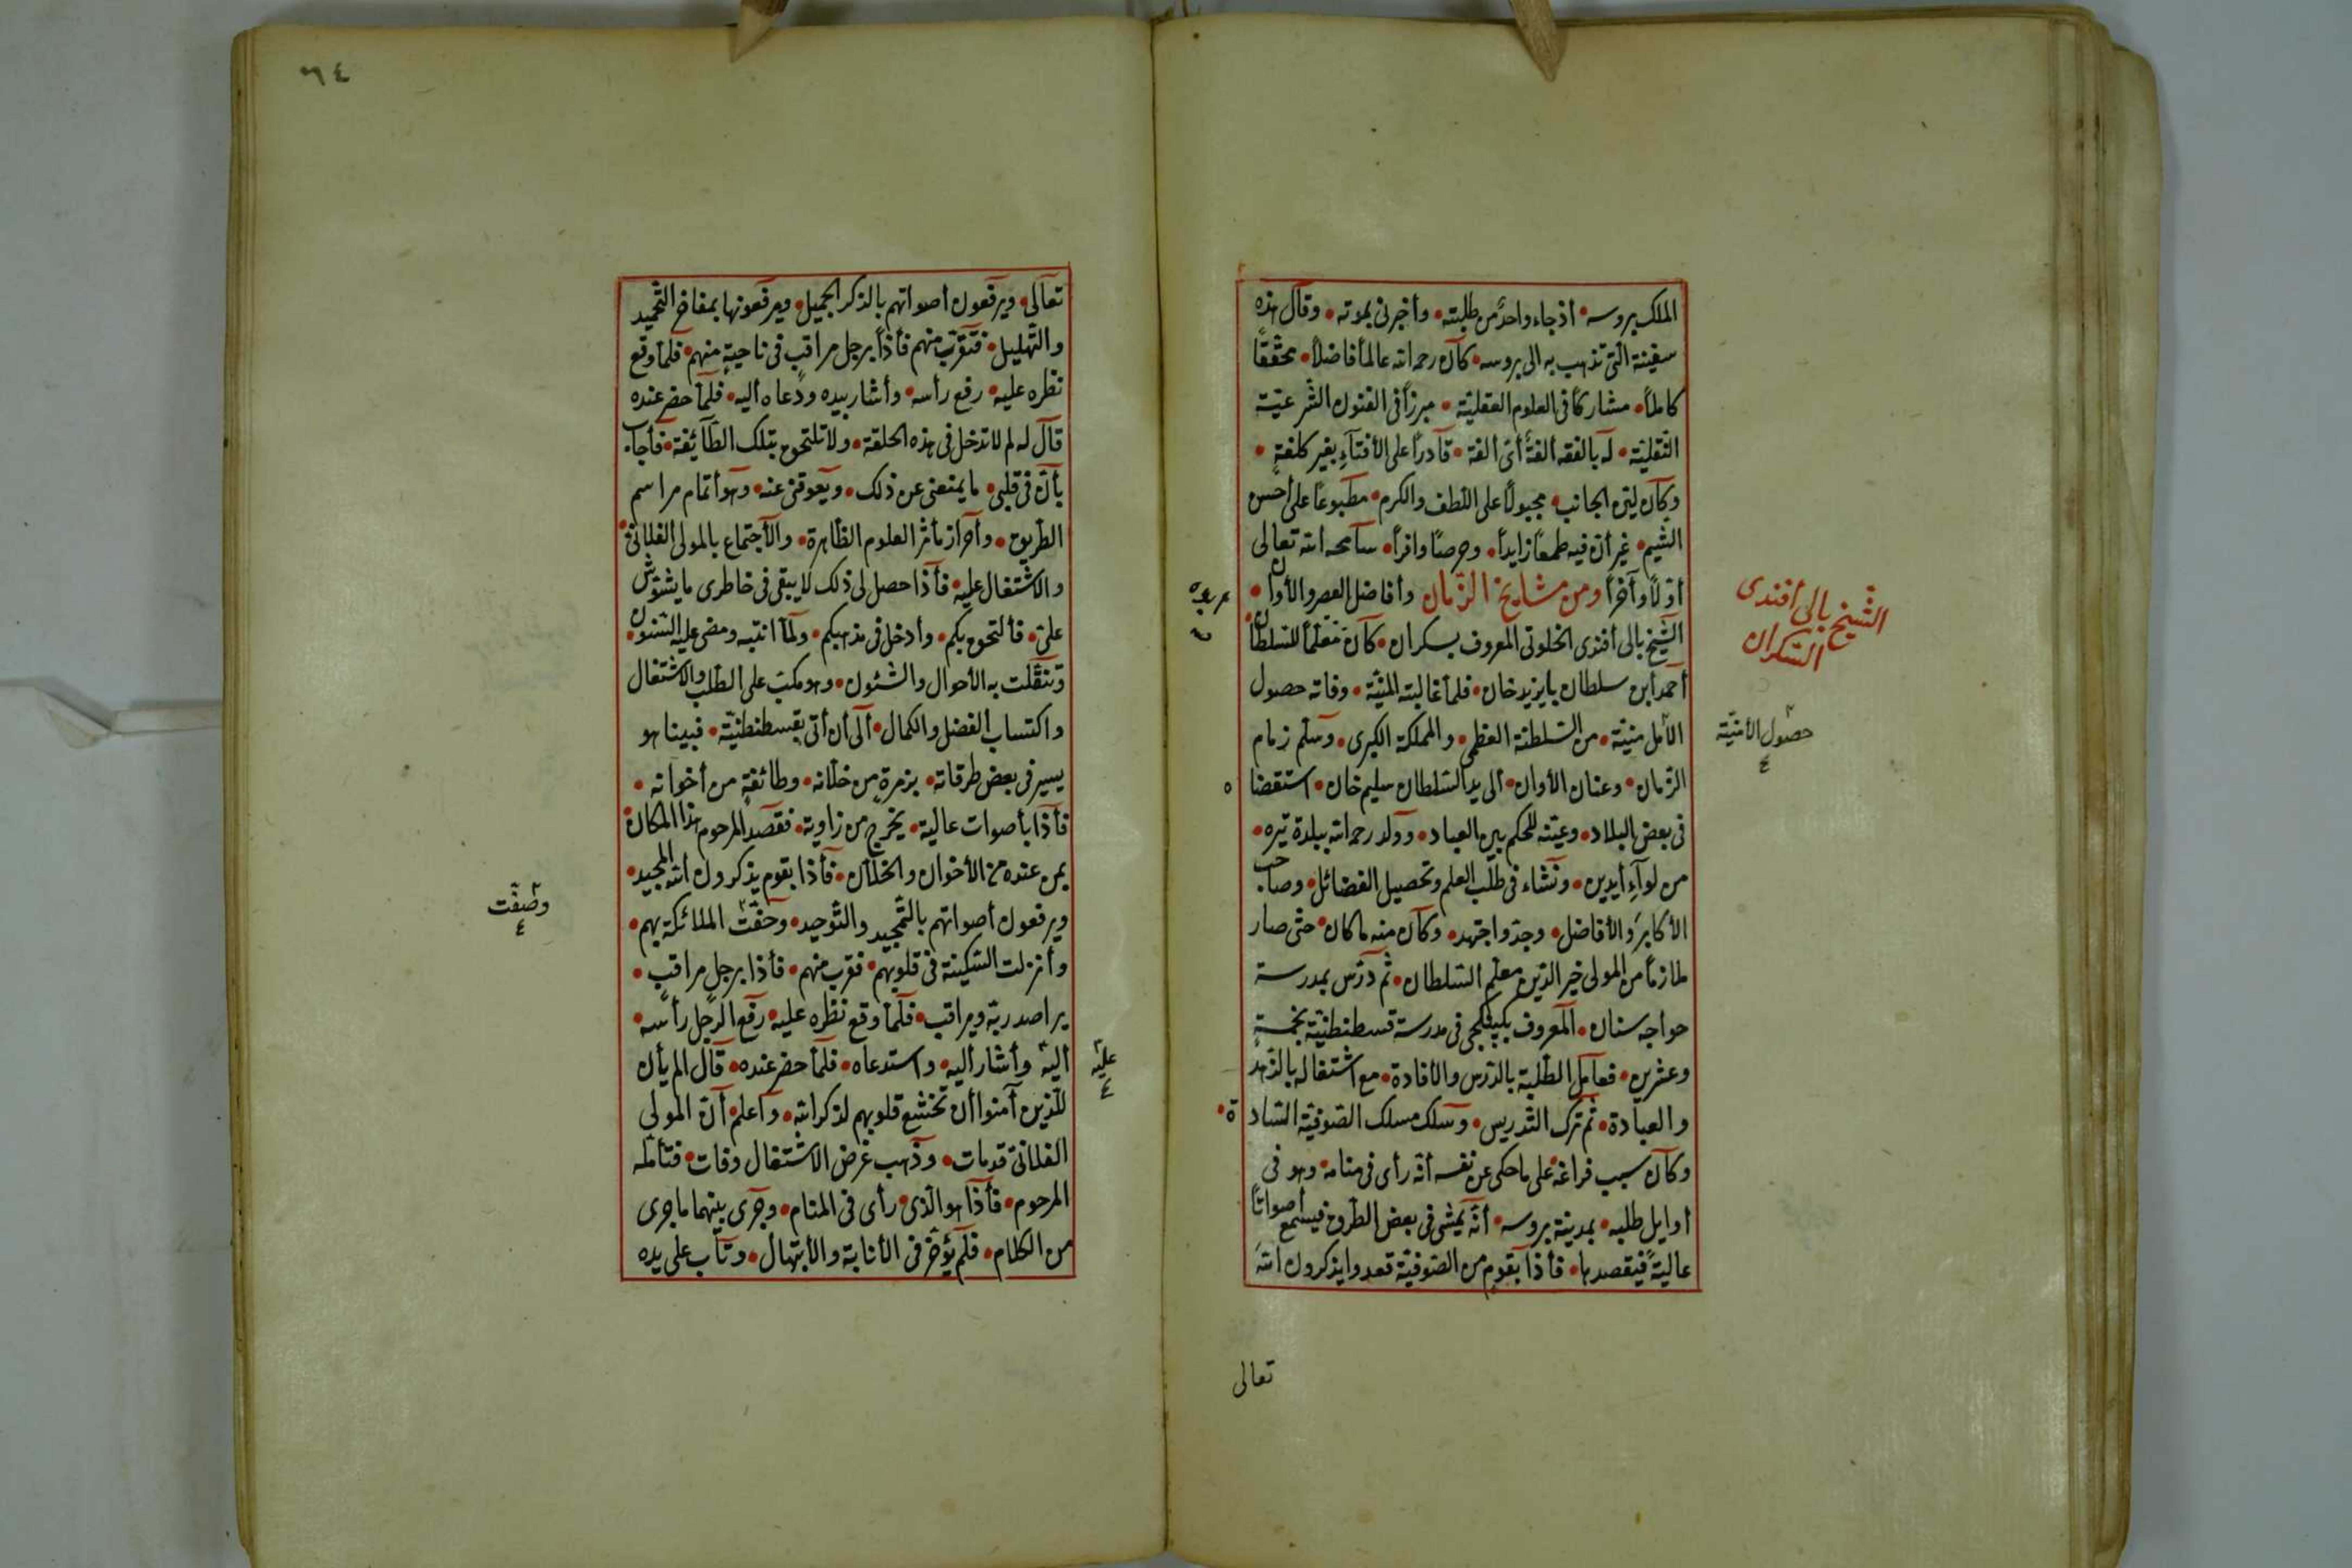 الملك بروسه • أذ جاء واحد من طلبته • وأخبرني بموته • وقال هذه
سفينة التي تذهب به الى بروسه • كان رحمه الله عالماً فاضلاً • محققاً
كاملاً • مشاركاً في العلوم العقلية • مبرزاً في الفنون الشرعية
النقلية • له بالفقه ألفة أيّ ألفة • قادراً على الأفتاء بغير كلفة •
وكان لين الجانب • مجبولاً على اللطف والكرم • مطبوعاً على أحسن
الشيم • غير أن فيه طمعاً زايداً • وحرصاً وافراً • سامحه الله تعالى
أولاً وآخراً ومن مشايخ الزمان وأفاضل العصر والأوان •
الشيخ بالى أفندى الخلوتى المعروف بسكران • كان معلماً للسلطان •
أحمد ابن سلطان بايزيد خان • فلما غالبته المنية • وفاته حصول
الأمل منيته • من السلطنة العظمى • والمملكة الكبرى • وسلم زمام
الزمان • وعنان الأوان • ألى يد السلطان سليم خان • استقضاه
في بعض البلاد • وعينه للحكم بين العباد • وولد رحمه الله ببلدة تيره •
من لواء أيدين • ونشاء في طلب العلم وتحصيل الفضائل • وصاحب
الأكابر والأفاضل • وجد واجتهد • وكان منه ما كان • حتى صار
ملازماً من المولى خير الدين معلم السلطان • ثم درس بمدرسة
حواجه سنان • المعروف في مدرسة قسطنطنية بخمسة
وعشرين • فعامل الطلبة بالدرس والافادة • مع اشتغاله بالزهد
والعبادة • ثم ترك التدريس • وسلك مسلك الصوفية السادة •
وكان سبب فراغه على ما حكى عن نفسه أنه رأى في منامه • وهو في
أوايل طلبه • بمدينة بروسه • أنه يمشى في بعض الطروق فيسمع أصواتاً
عالية فيقصدها • فأذا بقوم من الصوفية قعدوا يذكرون الله
تعالى
الشيخ بالى أفندى
السكران
حصول الأمنية
٤
٦٤
تعالى • ويرفعون أصواتهم بالذكر الجميل • ويرفعونها بمفاخ التحميد
والتهليل • فتقرب منهم فأذا برجل مراقب في ناحية منهم • فلما وقع
نظره عليه • رفع رأسه • وأشار بيده ودعاه أليه • فلما حضر عنده
قال له لم لا تدخل في هذه الحلقة • ولا تلتحق بتلك الطائفة • فأجاب
بأن في قلبى • ما يمنعنى عن ذلك • ويعوقنى عنه • وهو أتمام مراسم
الطريق • وأحراز مأثر العلوم الظاهرة • والأجتماع بالمولى الفلانى •
والاشتغال عليه • فأذا حصل لى ذلك لا يبقى في خاطرى ما يشوش
على • فألتحق بكم • وأدخل في مذهبكم • ولما انتبه ومضى عليه السنون •
وتنقلت به الأحوال والشئون • وهو مكب على الطلب والاشتغال
واكتساب الفضل والكمال • ألى أن أتى بقسطنطنية • فبينا هو
يسير في بعض طرقاته • بزمرة من خلانه • وطائفة من أخوانه •
فأذا بأصوات عالية • يخرج من زاوية • فقصد المرحوم هذا المكان •
بمن عنده من الأخوان والخلان • فأذا بقوم يذكرون الله المجيد •
ويرفعون أصواتهم بالتمجيد والتوحيد • وحفت الملائكة بهم •
وأنزلت السكينة في قلوبهم • فقرب منهم • فأذا برجل مراقب •
يراصد ربه ويراقب • فلما وقع نظره عليه • رفع الرجل رأسه •
أليه وأشار أليه • واستدعاه • فلما حضر عنده • قال الم يأن
للذين آمنوا أن تخشع قلوبهم لذكر الله • وأعلم • أن المولى
الفلانى قد مات • وذهب غرض الاشتغال وفات • فتأمله
المرحوم • فأذا هو الذى • رأى في المنام • وجرى بينهما ما جرى
من الكلام • فلم يؤخر في الأنابة والأبتهال • وتاب على يده
وصفت
٤
عليه
٤